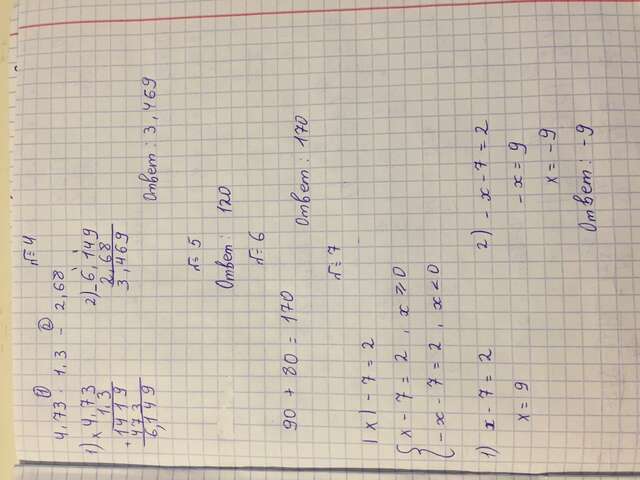 №4
4,73 · 1,3 - 2,68
1) × 4,73
1,3
+ 1419
473
6,149
2) - 6,149
2,68
3,469
Ответ: 3,469
№5
Ответ: 120
№6
90 + 80 = 170
Ответ: 170
№7
|x| - 7 = 2
{ x - 7 = 2 , x ≥ 0
- x - 7 = 2 , x < 0
1) x - 7 = 2
x = 9
2) - x - 7 = 2
- x = 9
x = -9
Ответ: -9